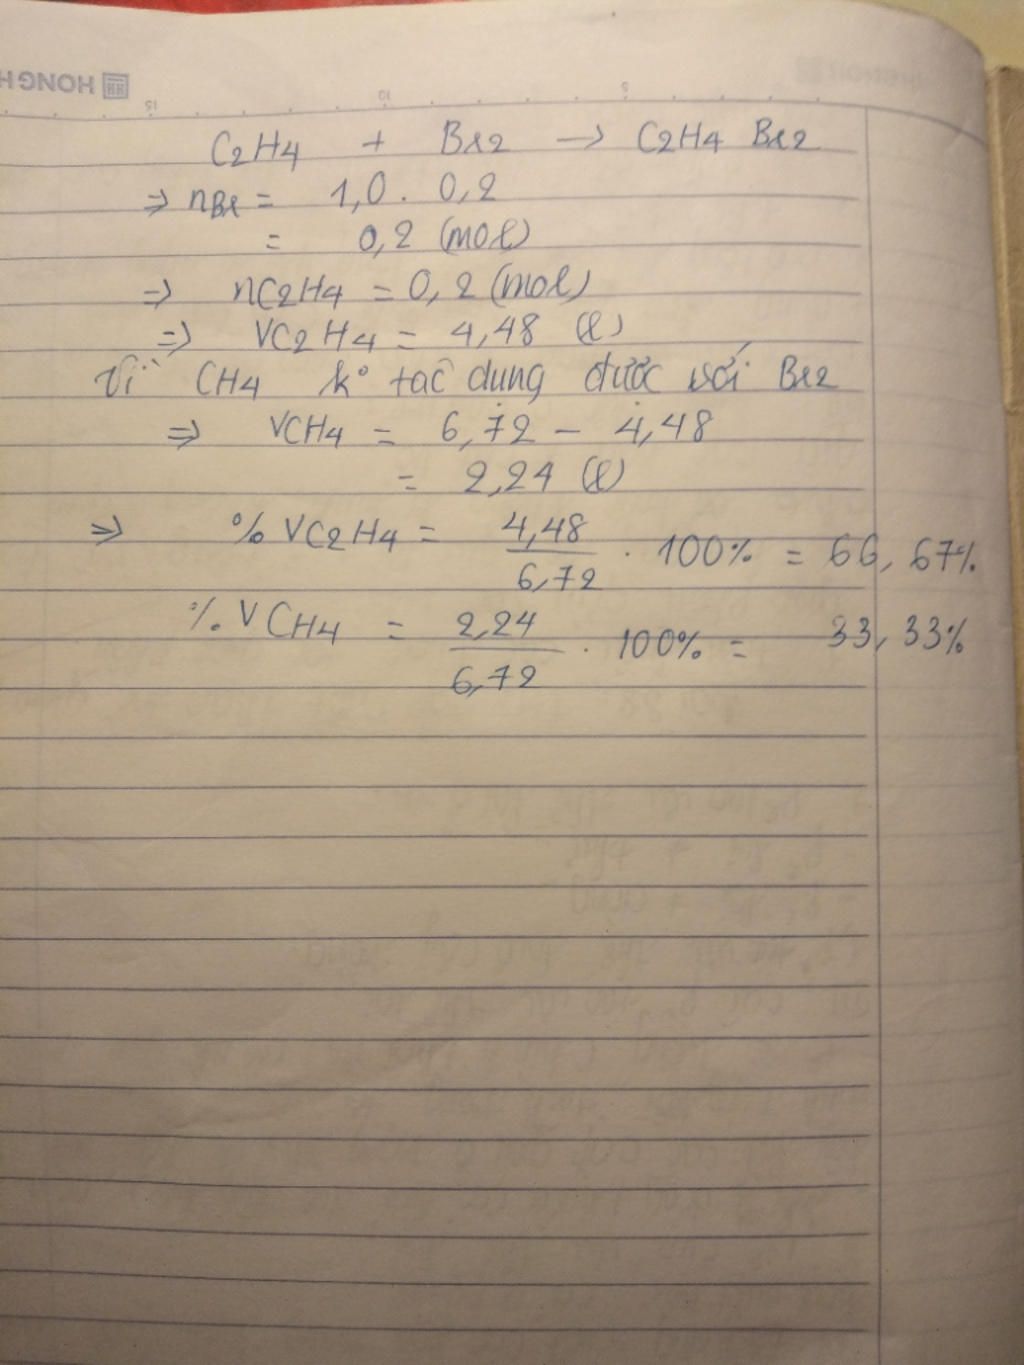 HONG H
15 10 5
C2H4 + Br2 → C2H4 Br2
⇒ nBr = 1,0 . 0,2
= 0,2 (mol)
⇒ nC2H4 = 0,2 (mol)
⇒ VC2H4 = 4,48 (l)
Vì CH4 k° tác dụng được với Br2
⇒ VCH4 = 6,72 - 4,48
= 2,24 (l)
⇒ % VC2H4 = 4,48 / 6,72 . 100% = 66,67%
% VCH4 = 2,24 / 6,72 . 100% = 33,33%